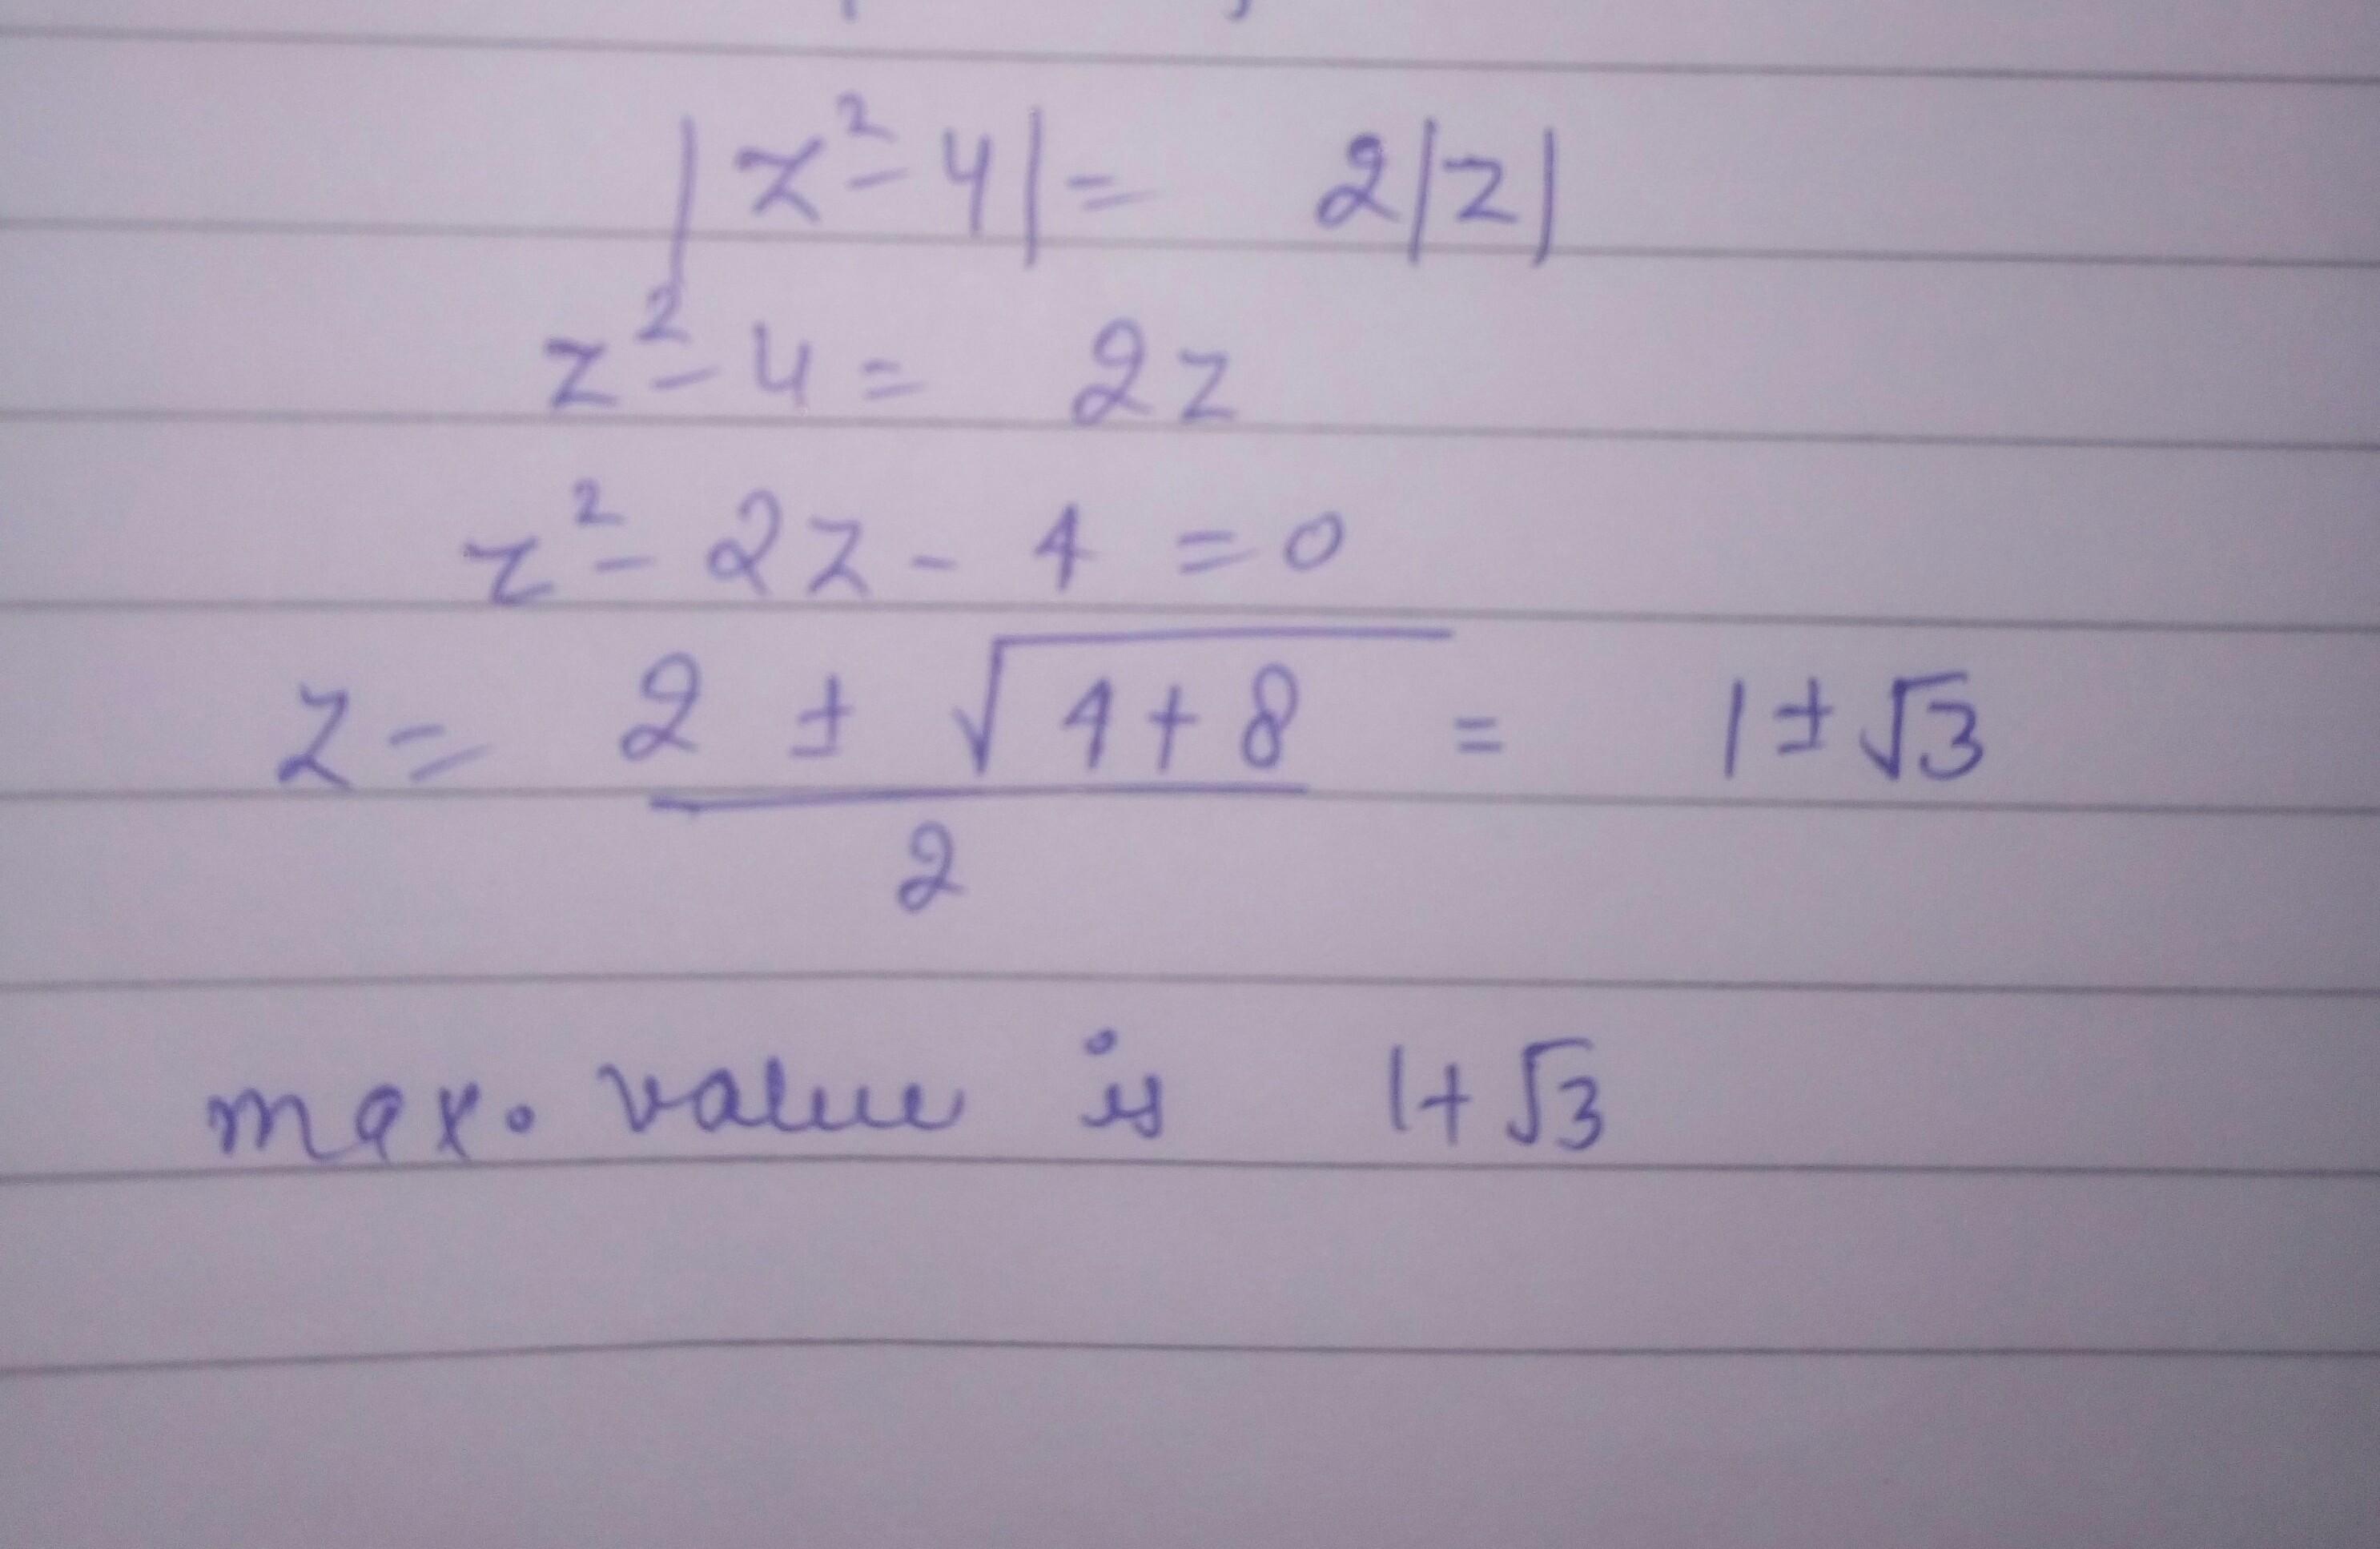 |z² - 4| = 2|z|
z² - 4 = 2z
z² - 2z - 4 = 0
z = (2 ± √(4+8))/2 = 1 ± √3
max. value is 1+√3